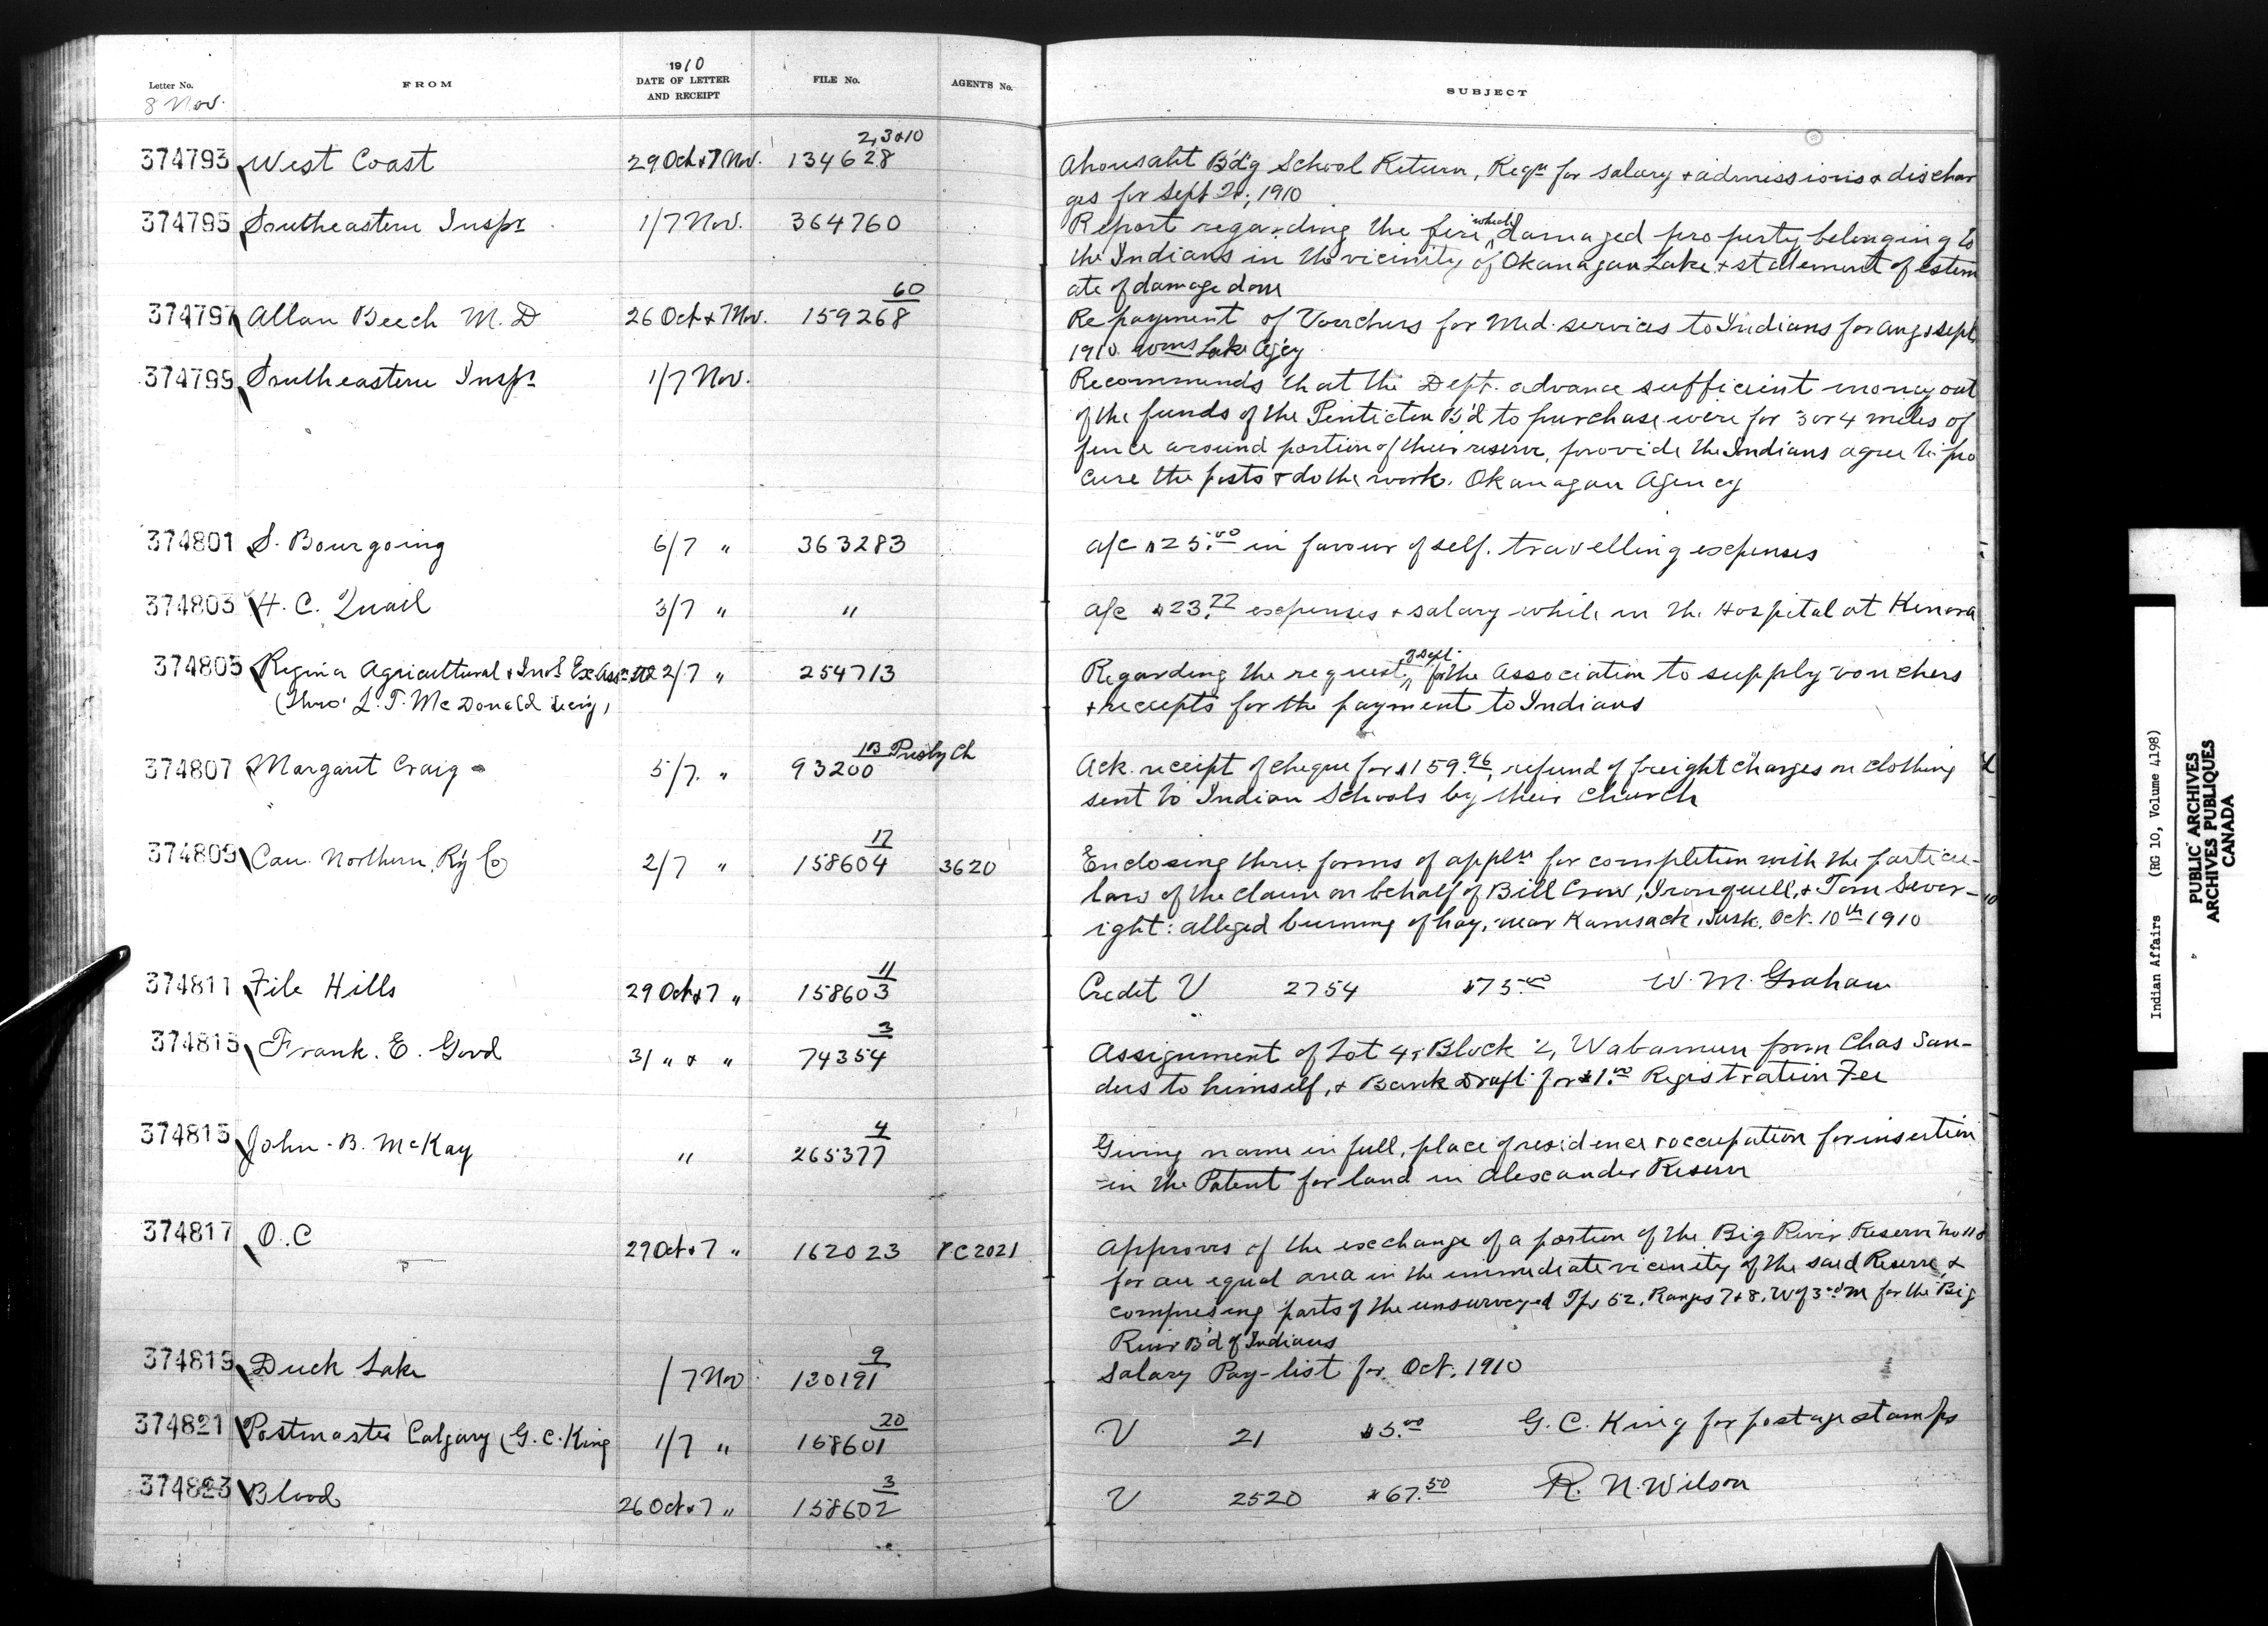 Letter No. FROM 1910 DATE OF LETTER AND RECEIPT FILE No. AGENT'S No. SUBJECT
8 Nov.
2,3&10
374793 West Coast 29 Oct & 7 Nov. 134628 Ahousaht B'd'g School Return, Reqn for salary & admissions & dischar
ges for Sept Qr, 1910
374795 Southeastern Inspr 1/7 Nov. 364760 Report regarding the fire which damaged property belonging to
the Indians in the vicinity of Okanagan Lake & statement of estim
ate of damage done
60
374797 Allan Beech M.D 26 Oct & 7 Nov. 159268 Repayment of Vouchers for Med. services to Indians for Aug & Sept
1910. Wms Lake Ag'cy
374799 Southeastern Inspr 1/7 Nov. Recommends that the Dept. advance sufficient money out
of the funds of the Penticton B'd to purchase wire for 3 or 4 miles of
fence around portion of their reserve, provide the Indians agree to pro
cure the posts & do the work. Okanagan Agency
374801 S. Bourgoing 6/7 " 363283 a/c $25.00 in favour of self. travelling expenses
374803 H. C. Quail 3/7 " " a/c $23.77 expenses & salary while in the Hospital at Kenora
374805 Regina Agricultural & Indl Ex Assn Ltd 2/7 " 254713 Regarding the request of Dept. for the Association to supply vouchers
(Thro' L. T. McDonald Sec'y) & receipts for the payment to Indians
1B Presby Ch
374807 Margaret Craig 5/7 " 93200 Ack. receipt of cheque for $159.96, refund of freight charges on clothing
sent to Indian Schools by their Church
17
374809 Can. Northern Ry Co 2/7 " 158604 3620 Enclosing three forms of appln for completion with the particu-
lars of the claim on behalf of Bill Crow, Ironquell, & Tom Sever-
ight: alleged burning of hay, near Kamsack, Sask. Oct. 10th 1910
11
374811 File Hills 29 Oct & 7 " 158603 Credit V 2754 $75.00 W. M. Graham
3
374813 Frank. E. Good 31 " & " 74354 Assignment of Lot 4, Block 2, Wabamun from Chas San-
ders to himself, & Bank Draft for $1.00 Registration Fee
4
374815 John B. McKay " 265377 Giving name in full, place of residence & occupation for insertion
in the Patent for land in Alexander Reserve
374817 O.C 29 Oct & 7 " 162023 PC 2021 Approves of the exchange of a portion of the Big River Reserve No 118
for an equal area in the immediate vicinity of the said Reserve, &
comprising parts of the unsurveyed Tps 52, Ranges 7 & 8, W of 3rd M for the Big
River B'd of Indians
9
374819 Duck Lake 1/7 Nov 130191 Salary Pay-list for Oct. 1910
20
374821 Postmaster Calgary (G. C. King 1/7 " 158601 V 21 $5.00 G. C. King for postage stamps
3
374823 Blood 26 Oct & 7 " 158602 V 2520 $67.50 R. N. Wilson
Indian Affairs (RG 10, Volume 4198)
PUBLIC ARCHIVES
ARCHIVES PUBLIQUES
CANADA